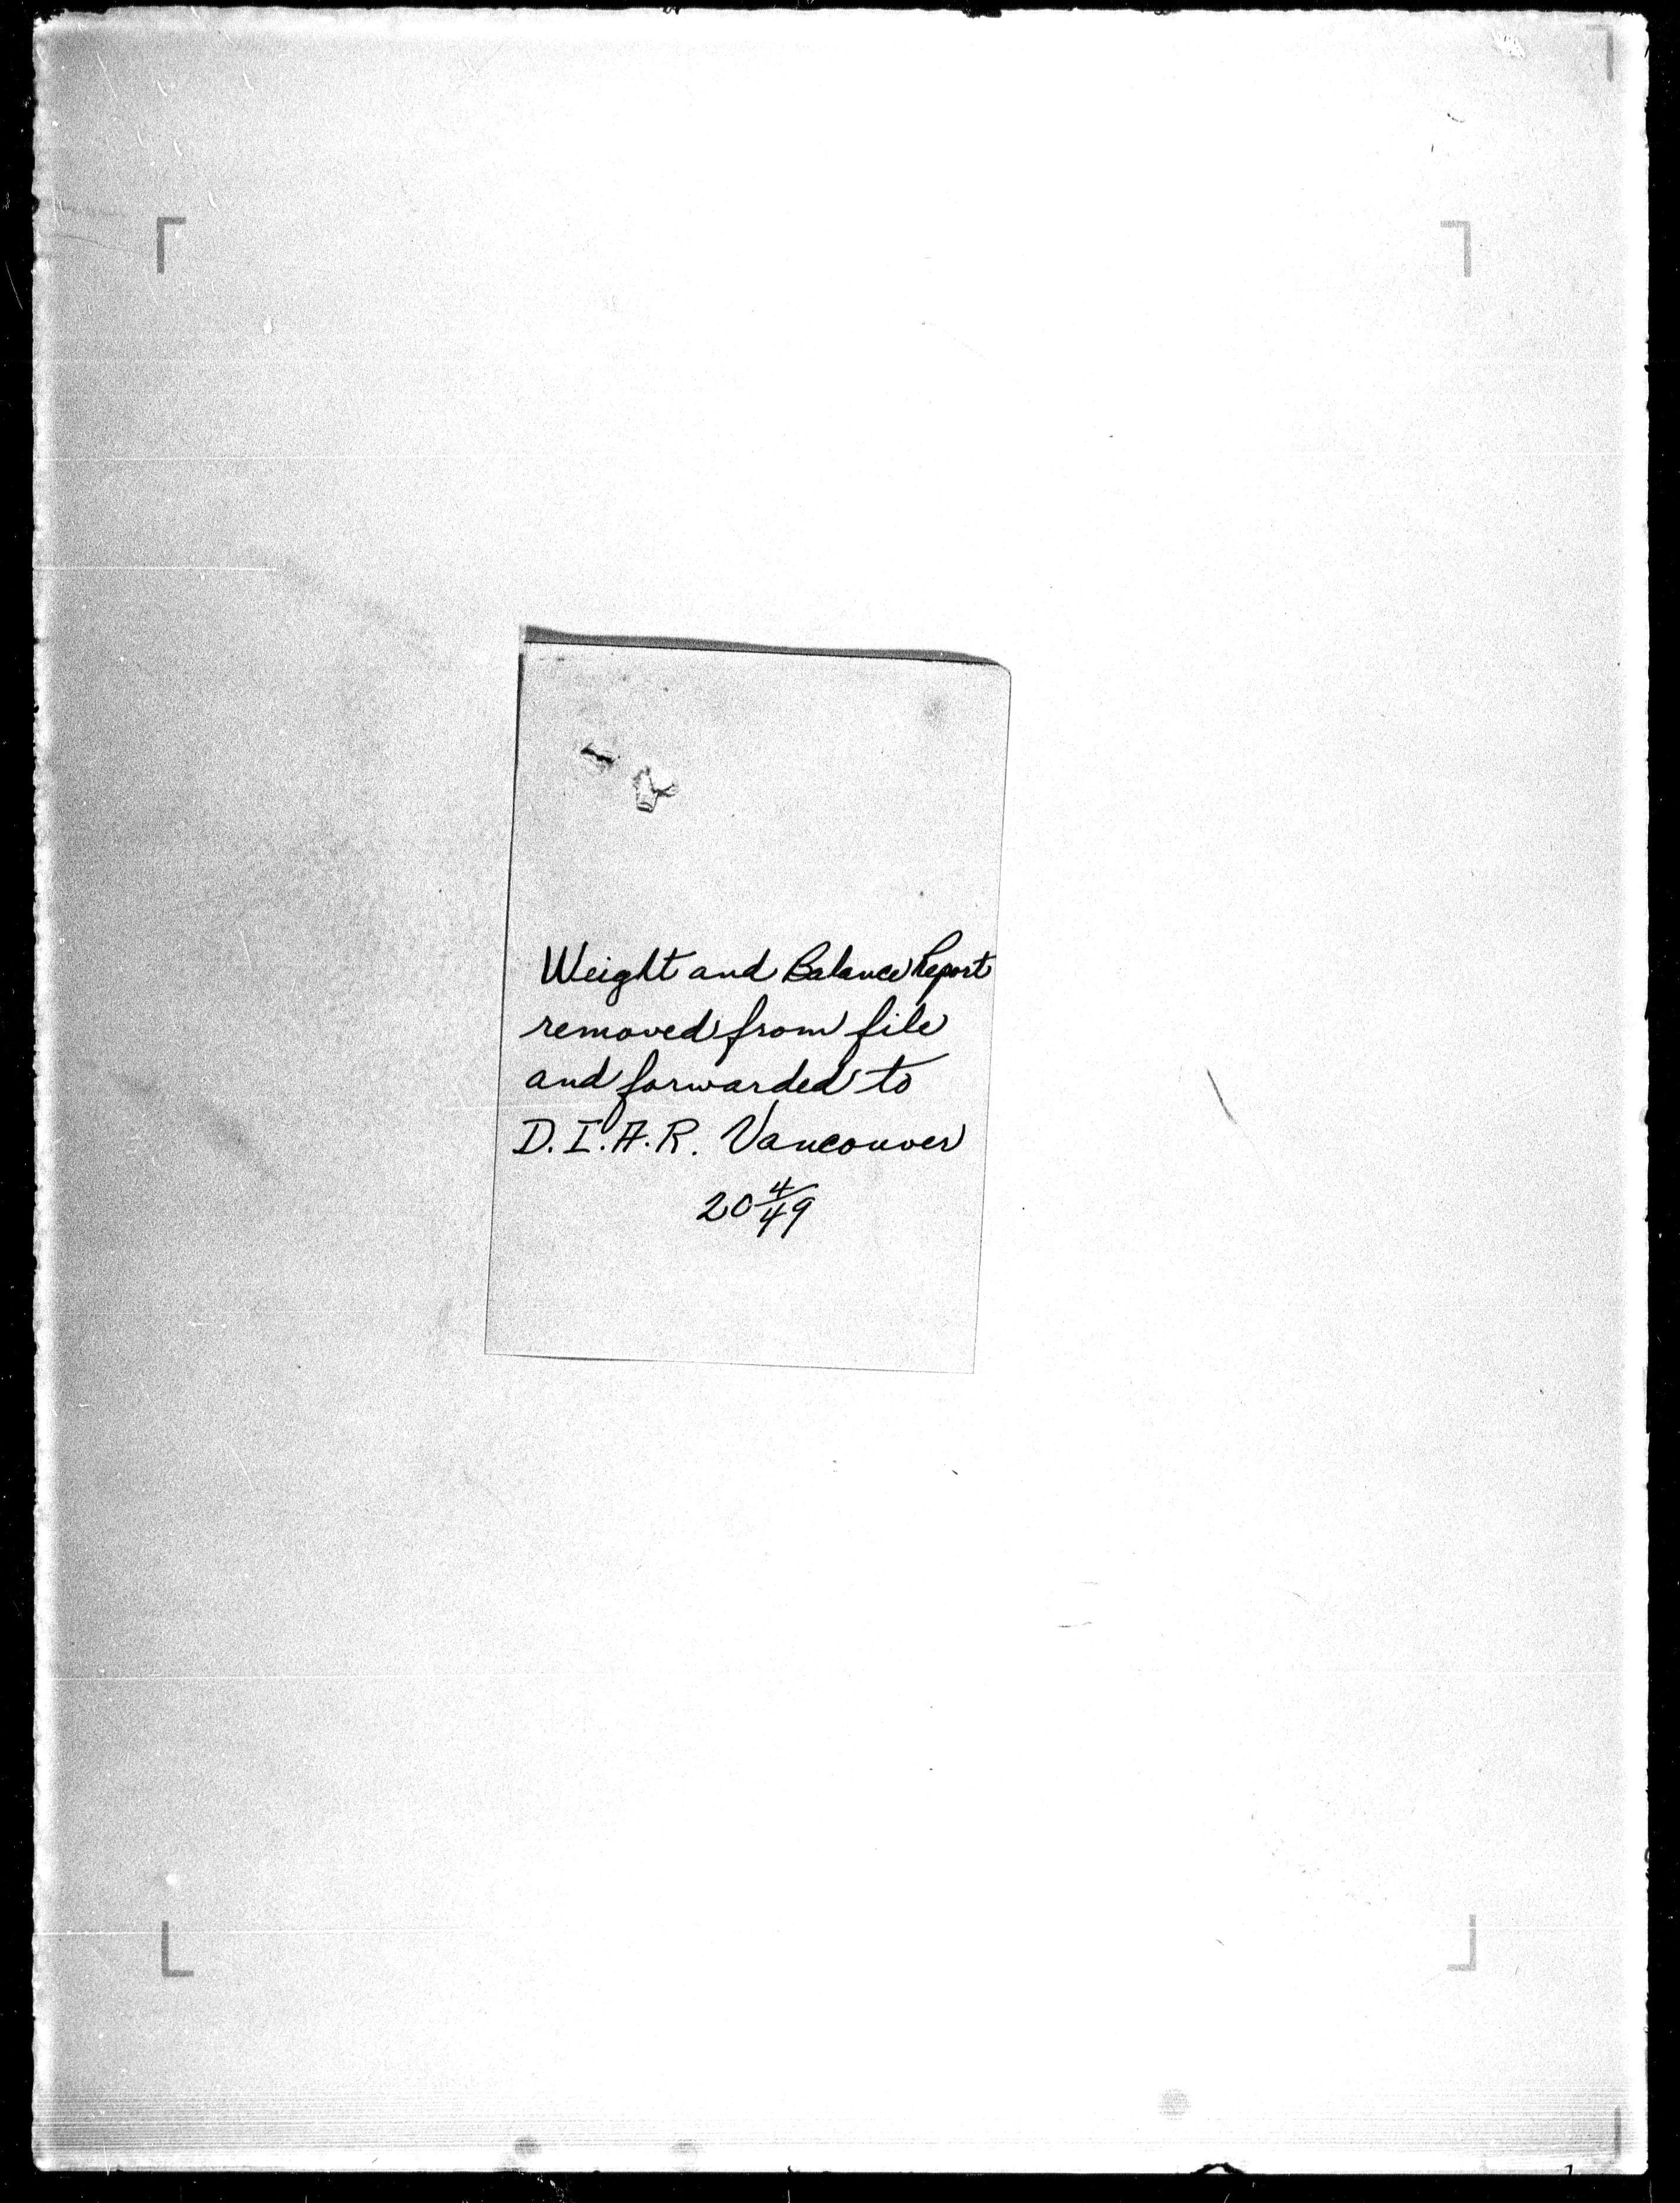 Weight and Balance Report
removed from file
and forwarded to
D.I.A.R. Vancouver
20 4/49